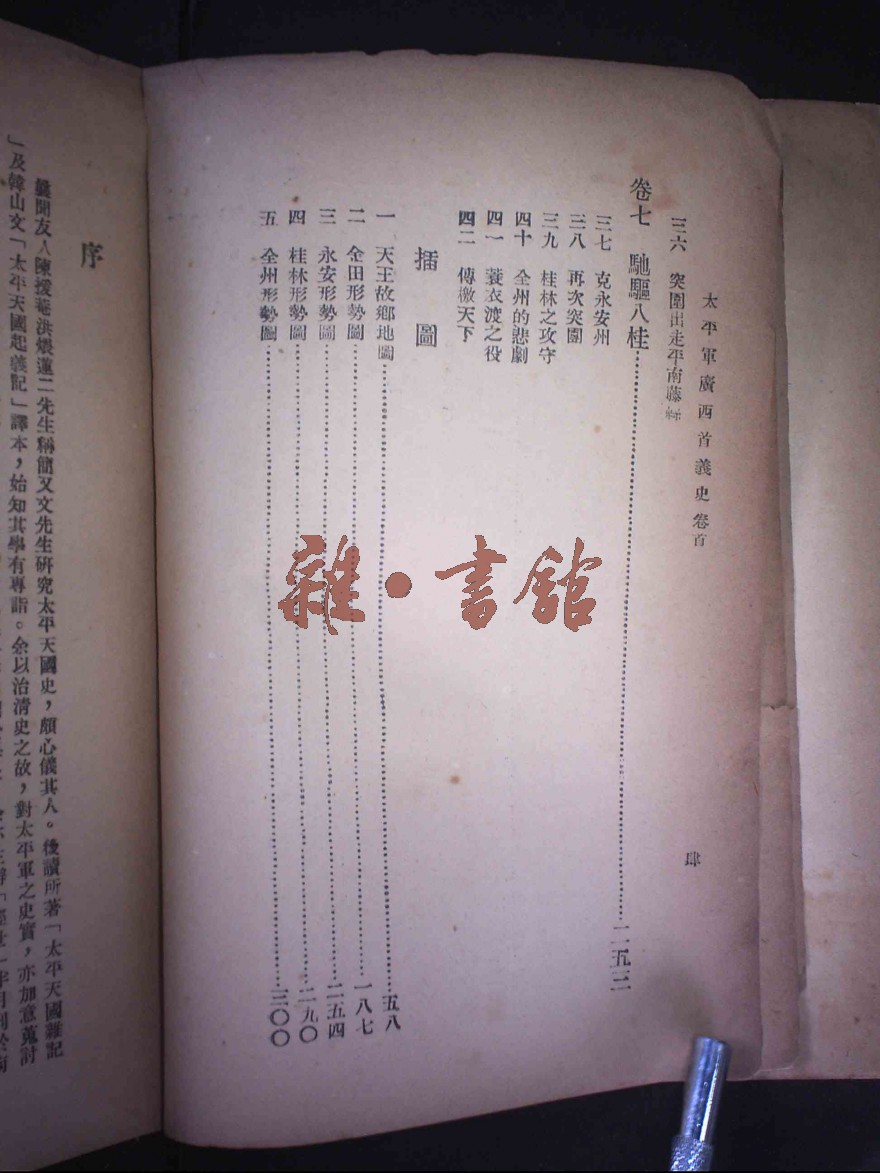 太平軍廣西首義史卷首
肆
三六　突圍出走平南藤縣
卷七　馳驅八桂…………二五三
三七　克永安州
三八　再次突圍
三九　桂林之攻守
四十　全州的悲劇
四一　蓑衣渡之役
四二　傳檄天下
插圖
一　天王故鄉地圖…………五八
二　金田形勢圖…………一八七
三　永安形勢圖…………二五四
四　桂林形勢圖…………二九〇
五　全州形勢圖…………三〇〇
雜·書館
序
曩聞友人陳援菴洪煨蓮二先生稱簡又文先生研究太平天國史，頗心儀其人。後讀所著「太平天國雜記
」及韓山文「太平天國起義記」譯本，始知其學有專詣。余以治清史之故，對太平軍之史實，亦加意蒐討